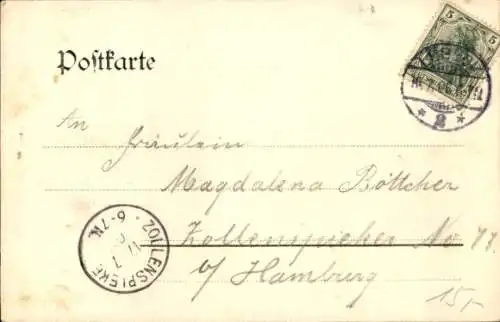 Postkarte
5 5
* 2 *
An
Fräulein
Magdalena Böttcher
Zollenspieker No 77
b/ Hamburg
ZOLLENSPIEKER
6-7N.
15,-